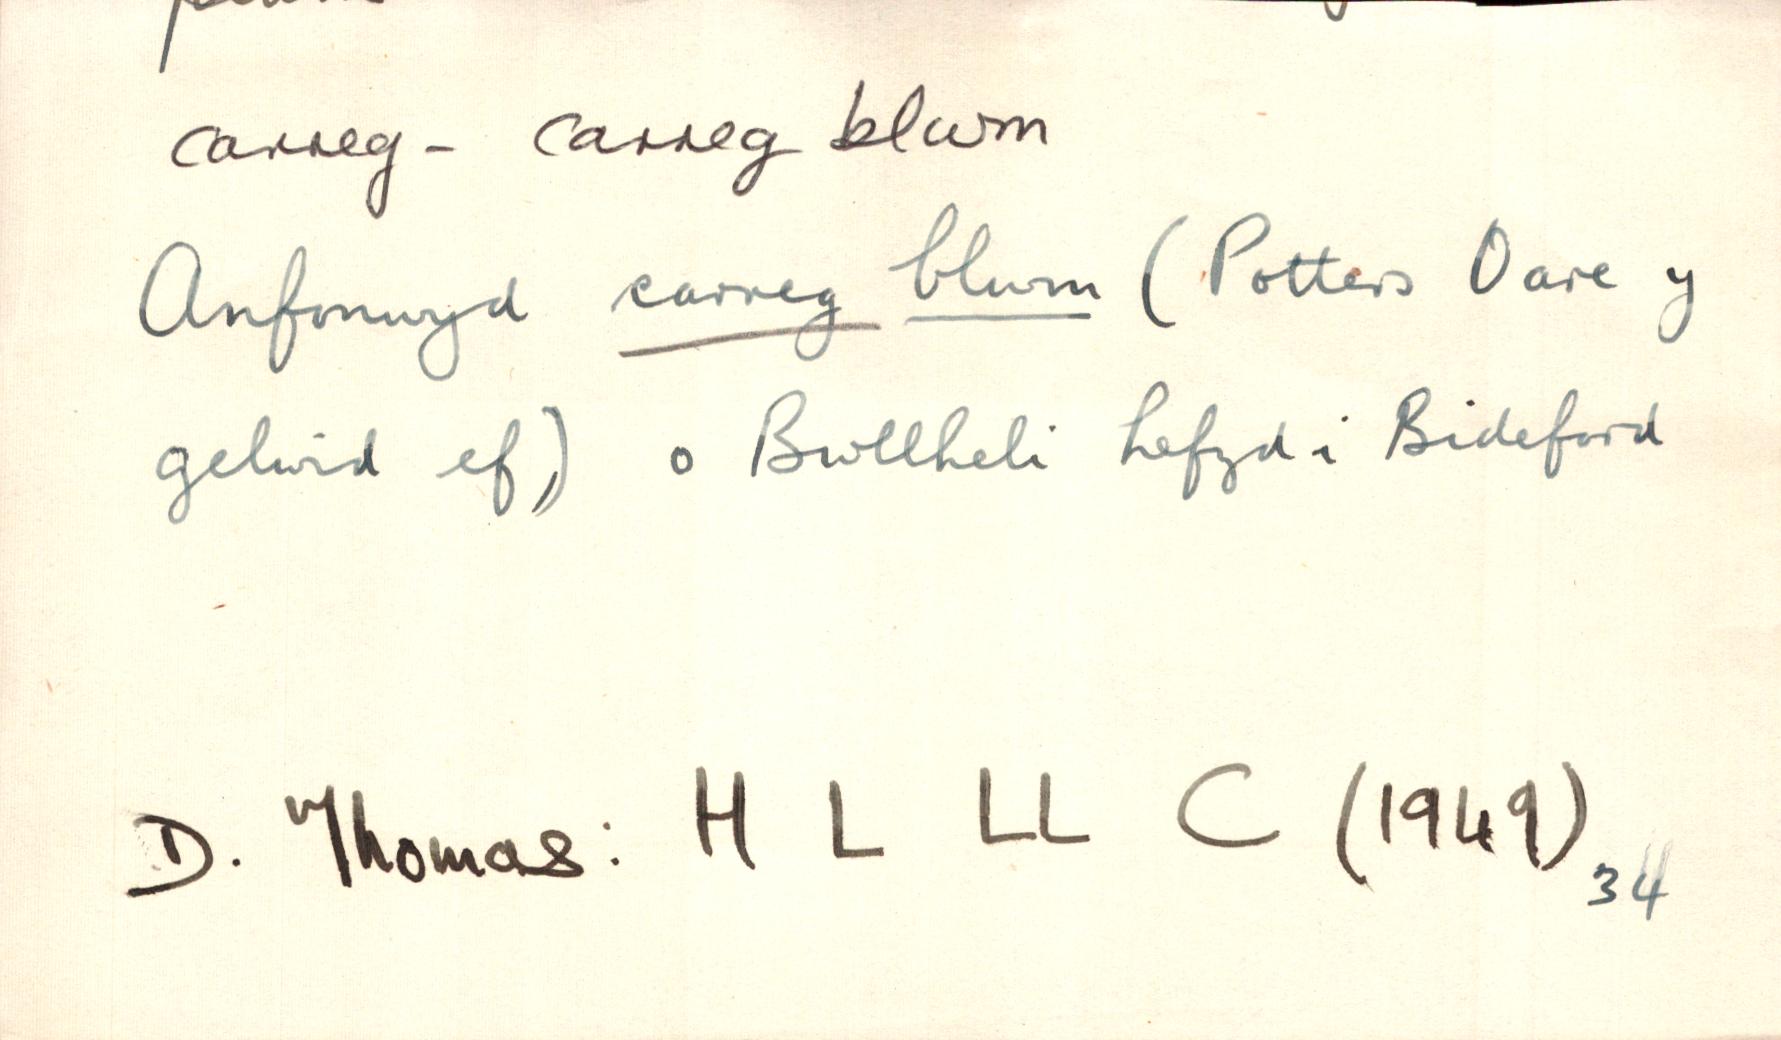 carreg - carreg blwm
Anfonwyd carreg blwm (Potters Oare y
gelwid ef,) o Bwllheli hefyd i Bideford
D. Thomas: H L LL C (1949) 34